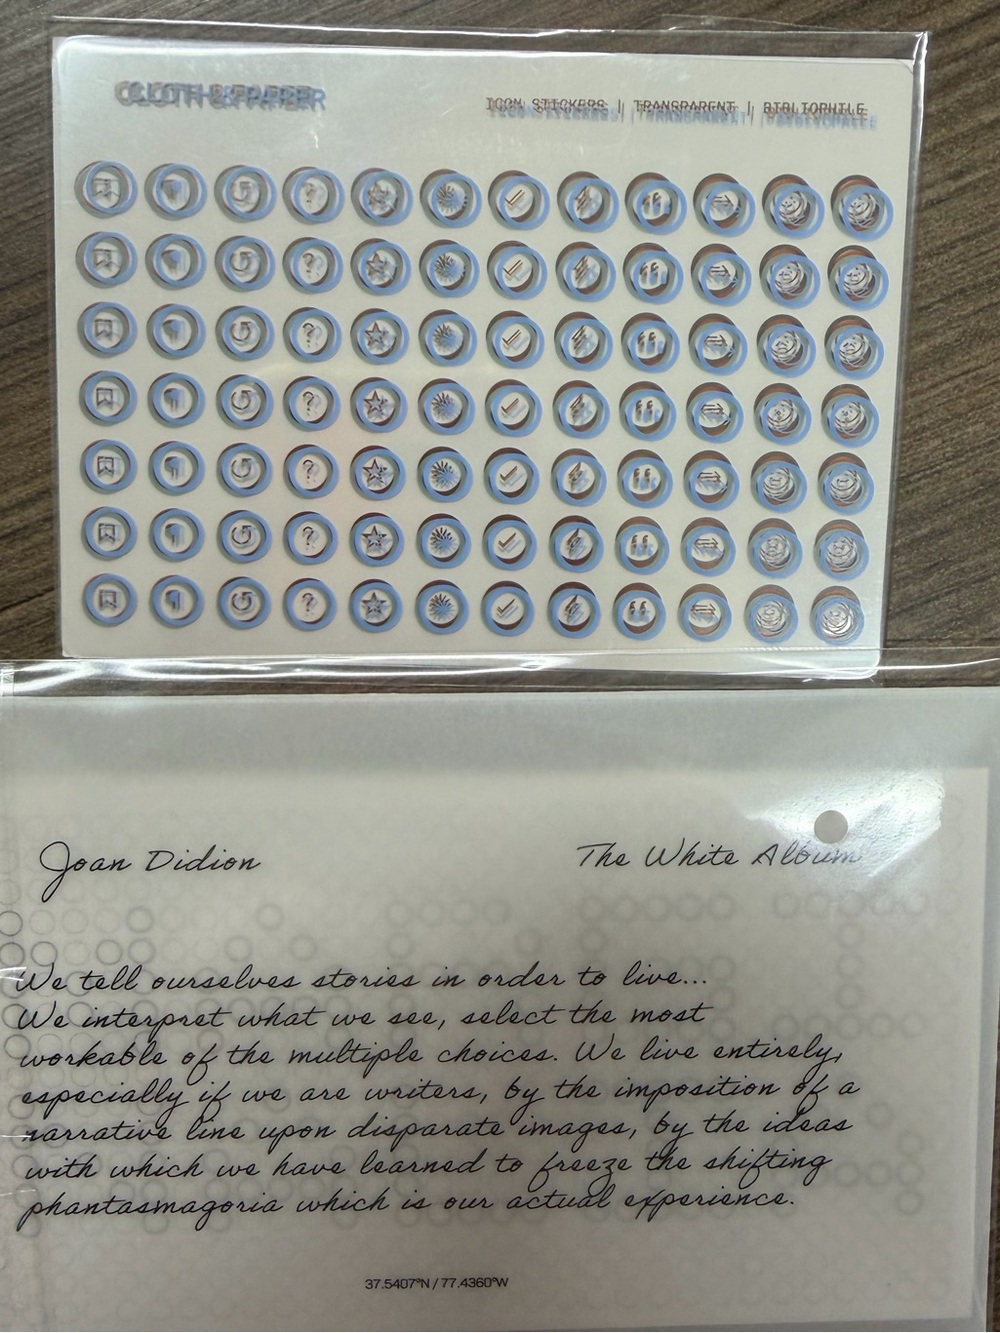 CLOTH & PAPER
ICON STICKERS | TRANSPARENT | BIBLIOPHILE
Joan Didion
The White Album
We tell ourselves stories in order to live...
We interpret what we see, select the most
workable of the multiple choices. We live entirely,
especially if we are writers, by the imposition of a
narrative line upon disparate images, by the ideas
with which we have learned to freeze the shifting
phantasmagoria which is our actual experience.
37.5407°N / 77.4360°W